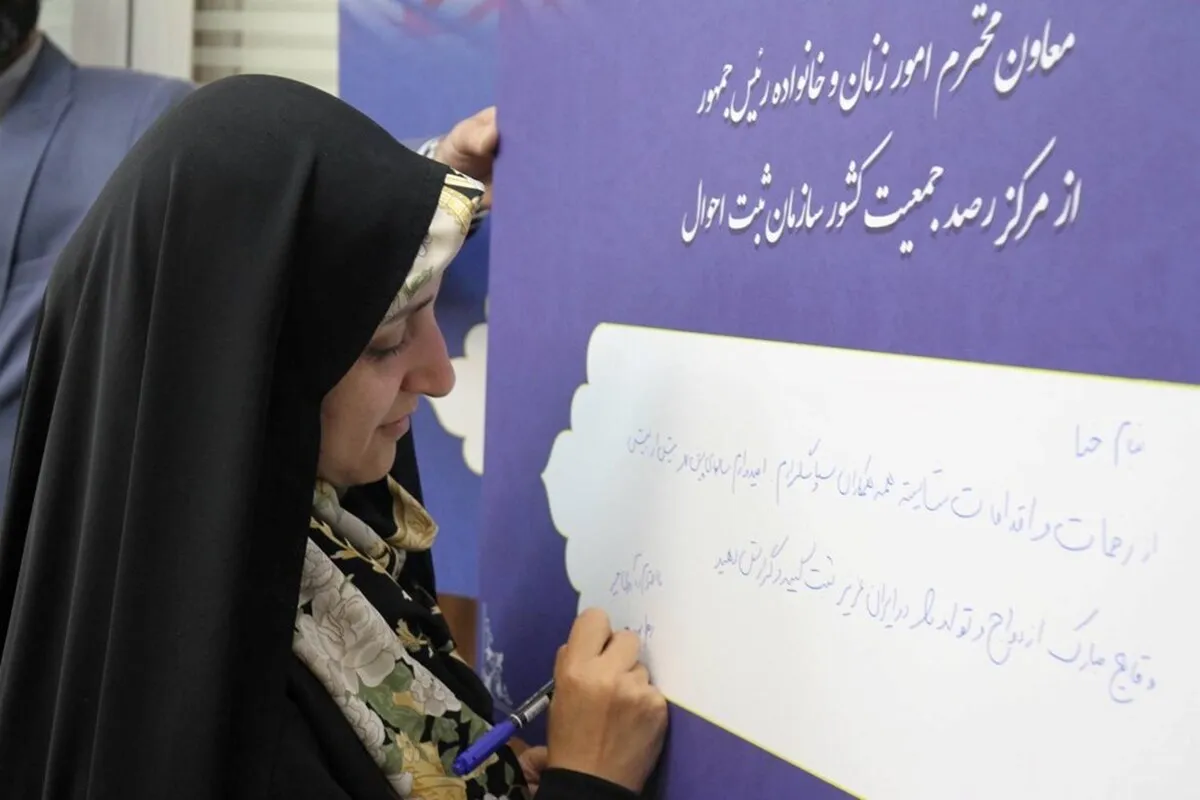 معاون محترم امور زنان و خانواده رئیس جمهور
از مرکز رصد جمعیت کشور سازمان ثبت احوال
بنام خدا
از زحمات و اقدامات شایسته همه همکاران سپاسگزارم امیدوارم بیش از پیش
وقایع مبارک ازدواج و تولد را در ایران عزیز ثبت کنید و گزارش دهید